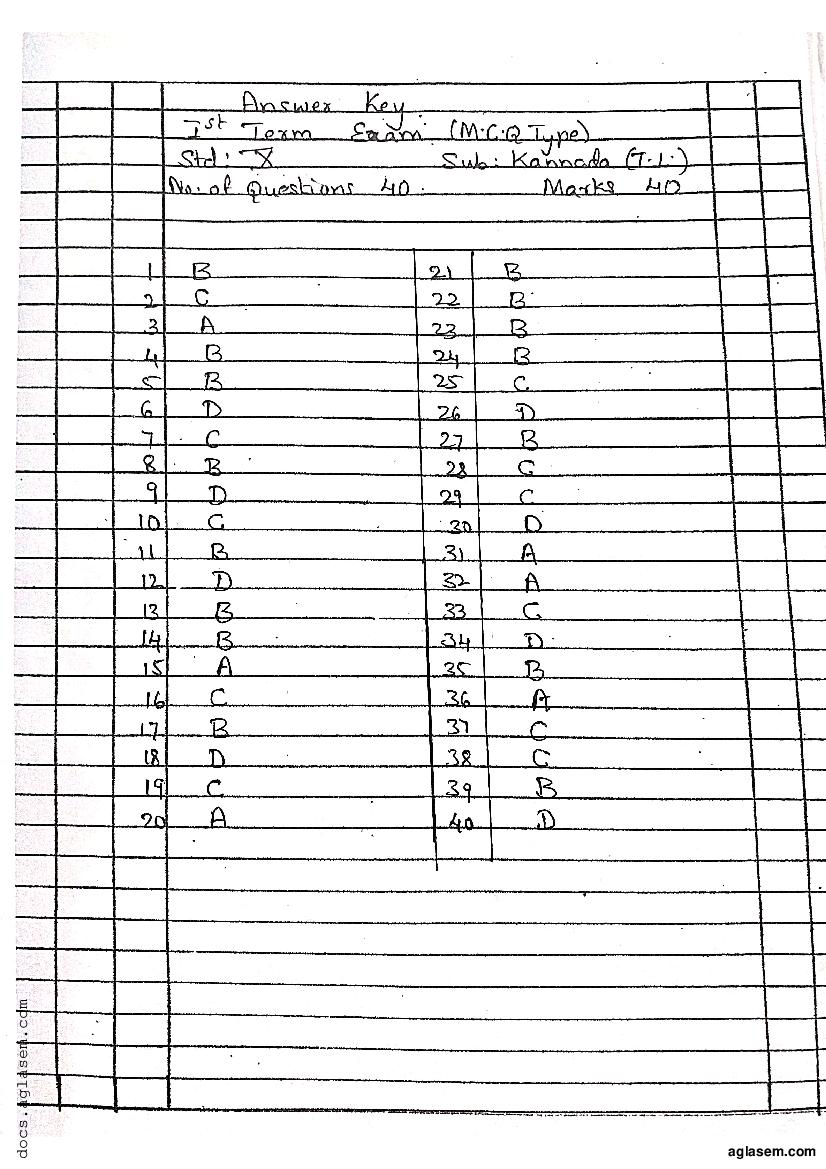 Answer Key
Ist Term Exam. (M.C.Q Type)
Std: X Sub: Kannada (T.L.)
No. of Questions 40. Marks 40
1 B 21 B
2 C 22 B
3 A 23 B
4 B 24 B
5 B 25 C
6 D 26 D
7 C 27 B
8 B 28 C
9 D 29 C
10 C 30 D
11 B 31 A
12 D 32 A
13 B 33 C
14 B 34 D
15 A 35 B
16 C 36 A
17 B 37 C
18 D 38 C
19 C 39 B
20 A 40 D
docs.aglasem.com
aglasem.com